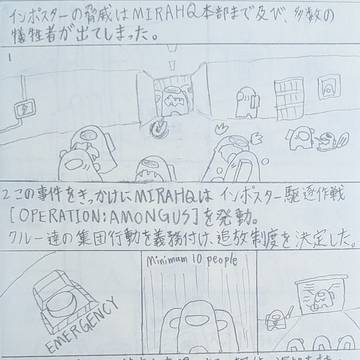 インポスターの脅威はMIRAHQ本部まで及び、多数の
犠牲者が出てしまった。
1
2 この事件をきっかけにMIRAHQは インポスター駆逐作戦
[OPERATION:AMONGUS]を発動。
クルー達の集団行動を義務付け、追放制度を決定した。
Minimum 10 people
EMERGENCY